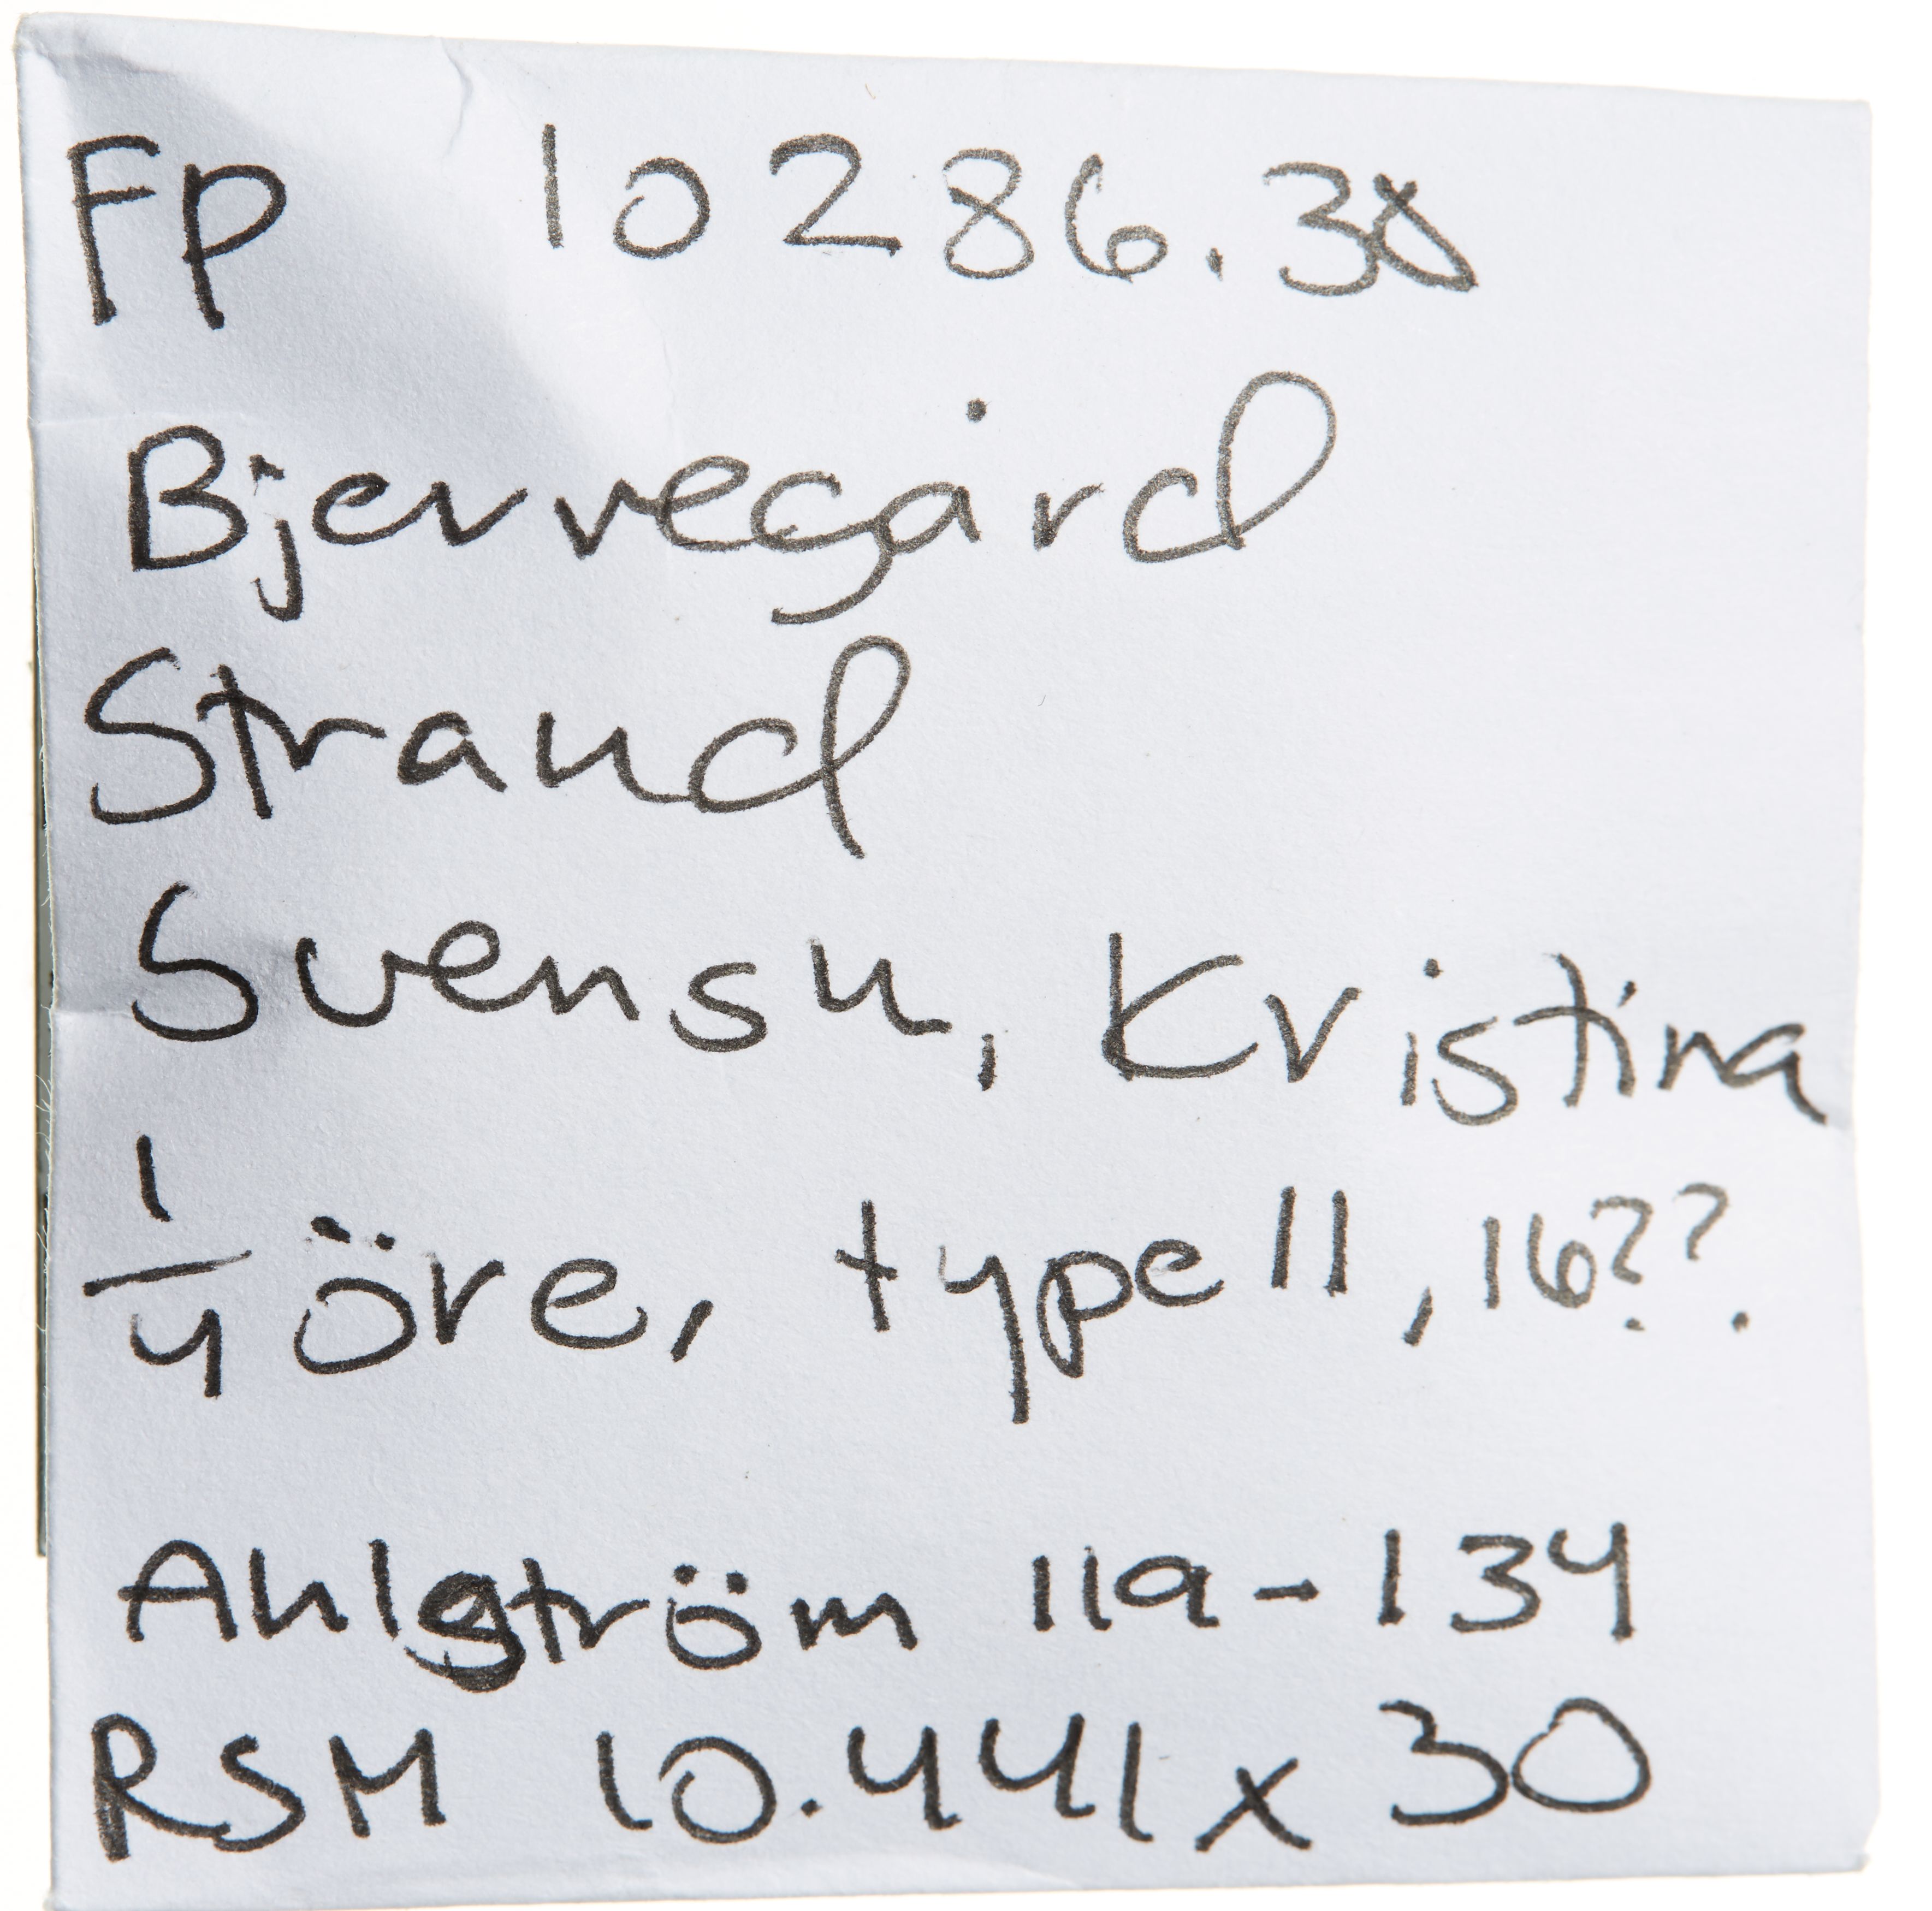 FP 10286.38
Bjerregård
Strand
Svensk, Kristina
1/4 öre, type II, 16??
Ahlström 119-134
RSM 10.441 x 30